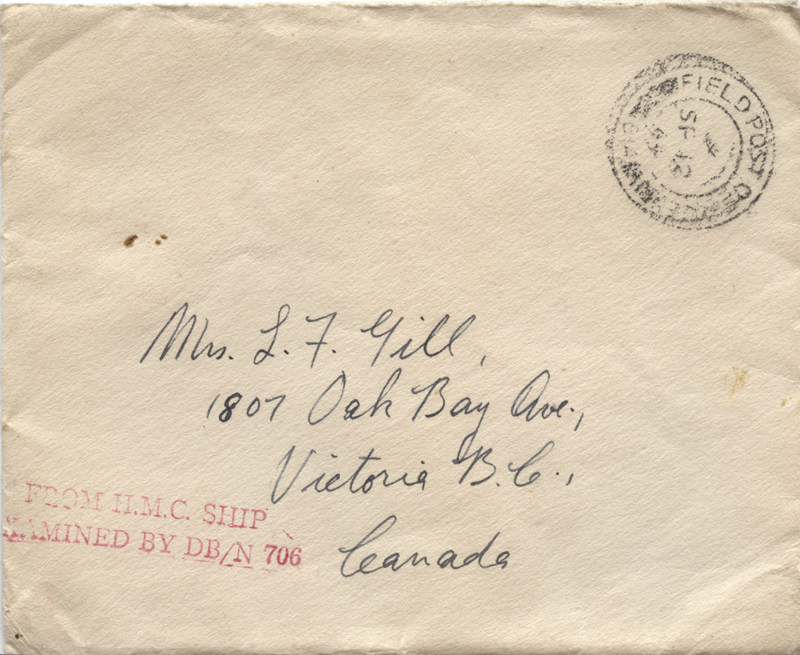 FIELD POST OFFICE
SP 12
Mrs. L. F. Gill,
1807 Oak Bay Ave.,
Victoria B.C.,
Canada
FROM H.M.C. SHIP
EXAMINED BY DB/N 706